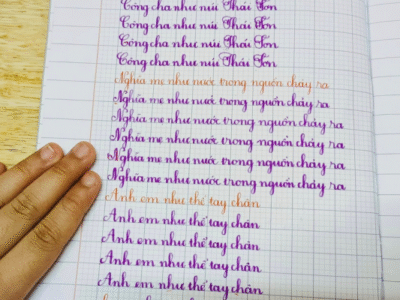 Công cha như núi Thái Sơn
Công cha như núi Thái Sơn
Công cha như núi Thái Sơn
Công cha như núi Thái Sơn
Nghĩa mẹ như nước trong nguồn chảy ra
Nghĩa mẹ như nước trong nguồn chảy ra
Nghĩa mẹ như nước trong nguồn chảy ra
Nghĩa mẹ như nước trong nguồn chảy ra
Nghĩa mẹ như nước trong nguồn chảy ra
Nghĩa mẹ như nước trong nguồn chảy ra
Anh em như thể tay chân
Anh em như thể tay chân
Anh em như thể tay chân
Anh em như thể tay chân
Anh em như thể tay chân